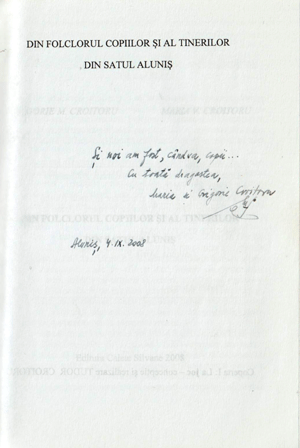 DIN FOLCLORUL COPIILOR ȘI AL TINERILOR
DIN SATUL ALUNIȘ
Și noi am fost, cândva, copii...
Cu toată dragostea,
Maria și Grigore Croitoru
Aluniș, 4.IX.2008